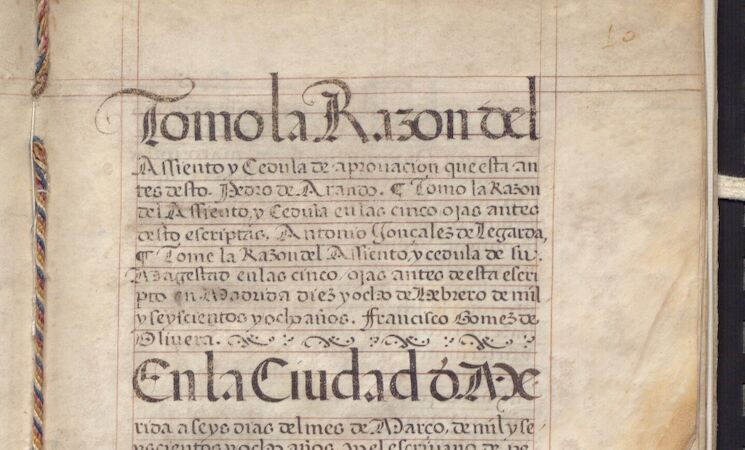 10
Tomo la Razon del
Assiento y Cedula de aprouacion que esta an
tes desto. Pedro de Arando. ¶ Tomo la Razon
del Assiento, y Cedula en las cinco ojas antes
desto escriptas. Antonio Gonçalez de Legarda,
¶ Tome la Razon del Assiento, y cedula de su.
Magestad en las cinco ojas antes de esta escri
pto en Madrid a diez y ocho de Hebrero de mil
y seyscientos y ocho años. Francisco Gomez de
Olivera.
En la Ciudad de Me
rida a seys dias del mes de Março, de mil y se
yscientos y ocho años, en el escrivano de